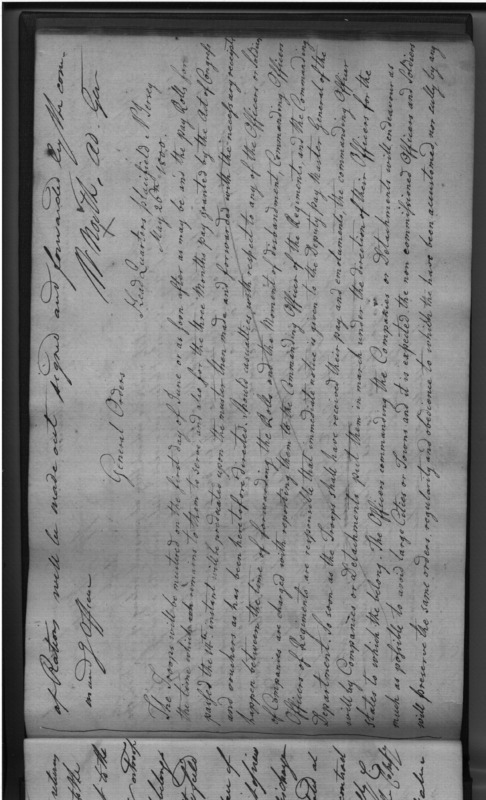 of Rations will be made out signed and forwarded by the com-
mandg Officer
Wm North, Ad. Gen
Head Quarters Plainfield N Jersey
May 26th 1800.
General Orders
The Troops will be mustered on the first day of June or as soon after as may be and the pay Rolls, for
the time which remains to them to serve, and also for the three Months pay granted by the Act of Congress
passed the 14th instant will be predicated upon the muster then made and forwarded with the necessary receipts
and vouchers as has been heretofore directed. Should casualties with respect to any of the Officers or soldiers
happen between the time of forwarding the Rolls and the Moment of disbandment Commanding Officers
of Companies are charged with reporting them to the Commanding Officer of the Regiment, and the Commanding
Officers of Regiments are responsible that immediate notice is given to the Deputy Pay Master General of the
Department. As soon as the Troops shall have received their pay and emoluments, the commanding Officer
will by Companies or Detachments put them in march under the direction of their Officers for the
States to which the belong. The Officers commanding the Companies or Detachments will endeavour as
much as possible to avoid large Cities or Towns and it is expected the non commissioned Officers and Soldiers
will preserve the same orders, regularity and obedience to which the have been accustomed, nor sully by any